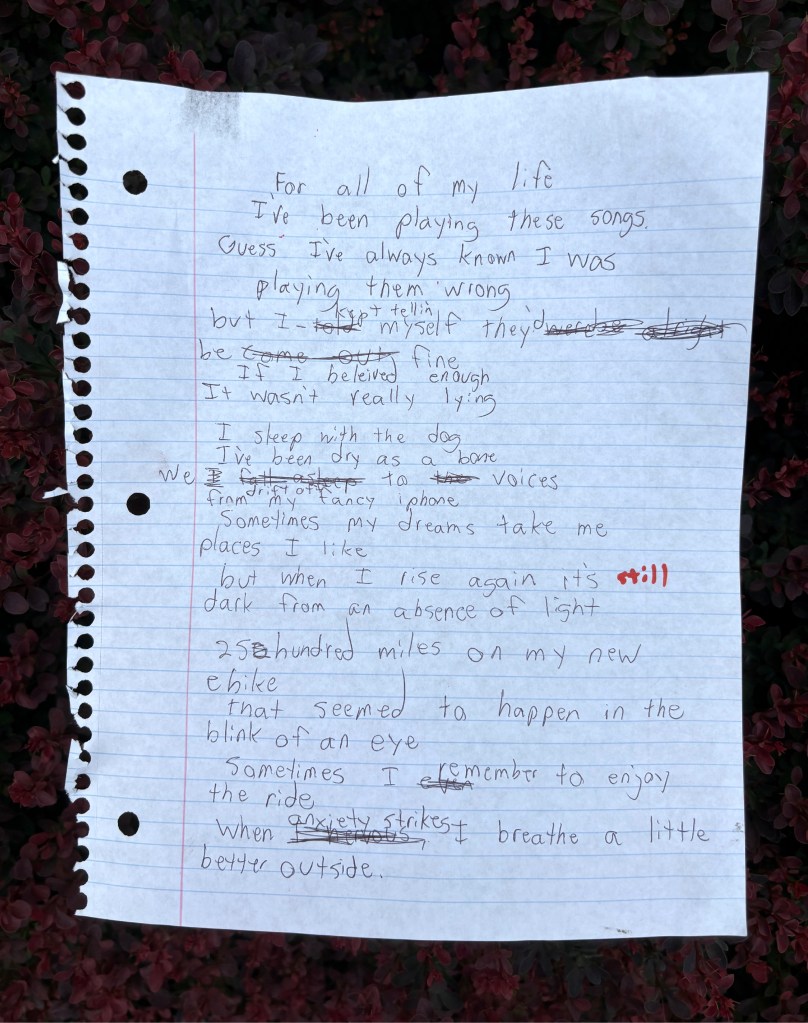 For all of my life
I've been playing these songs.
Guess I've always known I was
playing them wrong
but I kept tellin myself they'd
be fine
If I beleived enough
It wasn't really lying
I sleep with the dog
I've been dry as a bone
We drift off to voices
from my fancy iphone
Sometimes my dreams take me
places I like
but when I rise again it's still
dark from an absence of light
25 hundred miles on my new
ebike
that seemed to happen in the
blink of an eye
Sometimes I remember to enjoy
the ride
When anxiety strikes I breathe a little
better outside.